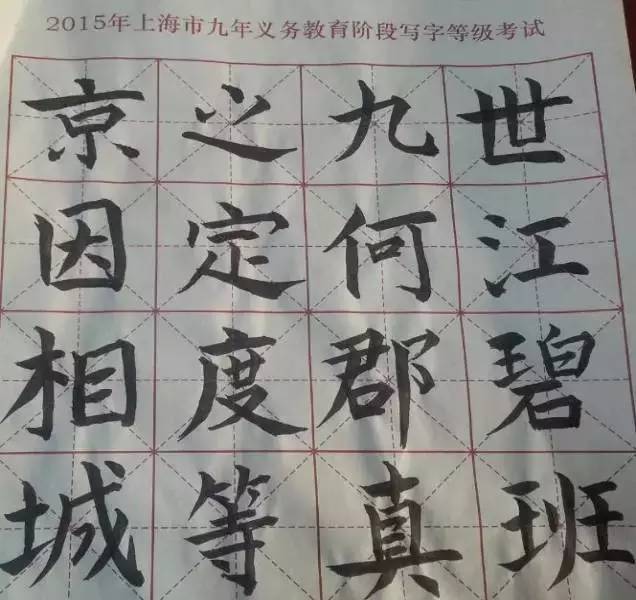 2015年上海市九年义务教育阶段写字等级考试
京之九世
因定何江
相度郡碧
城等真班